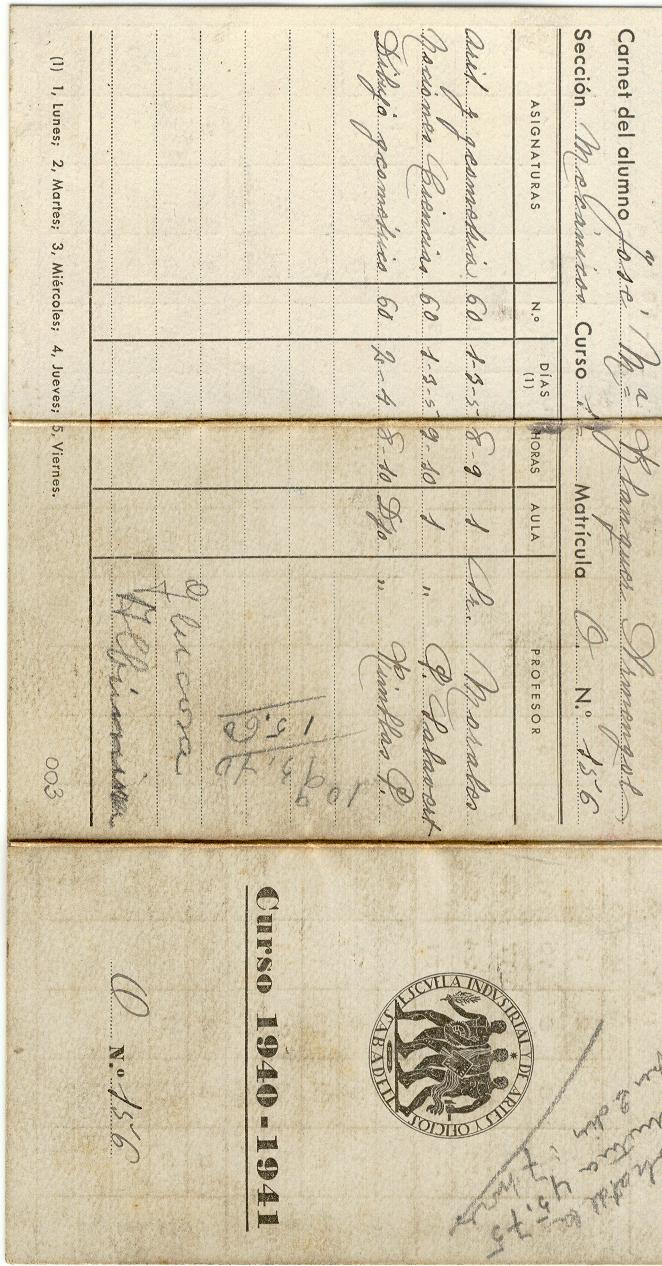 Carnet del alumno José Mª Blanquer Armengol
Sección Mecánicos Curso 1º Matrícula O. N.º 156
ASIGNATURAS N.º DÍAS (1) HORAS AULA PROFESOR
Arit. y geometria 60 1-3-5 8-9 1 Sr. Morales
Nociones Ciencias 60 1-3-5 9-10 1 " P. Salavert
Dibujo geométrico 60 2-4 8-10 Djo " Vintllas P.
1095,70
15.60
Glucosa
Albumina
(1) 1, Lunes; 2, Martes; 3, Miércoles; 4, Jueves; 5, Viernes.
003
ESCVELA INDVSTRIAL Y DE ARTES Y OFICIOS
SABADELL
Curso 1940-1941
O N.º 156
45,75